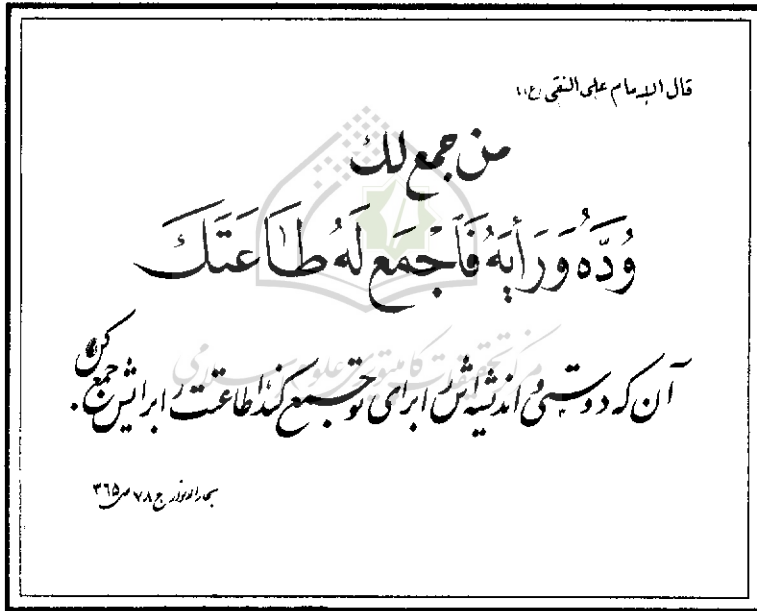 قال الإمام علی النقی (ع):
من جمع لك
وُدَّهُ وَرَأيَهُ فَاَجْمَع لَهُ طاَعَتَكَ
آن که دوستی و اندیشه اش را برای تو جمع کند اطاعتت را برایش جمع کن.
بحارالانوار ج ۷۸ ص ۳۶۵
مرکز تحقیقات کامپیوتری علوم اسلامی